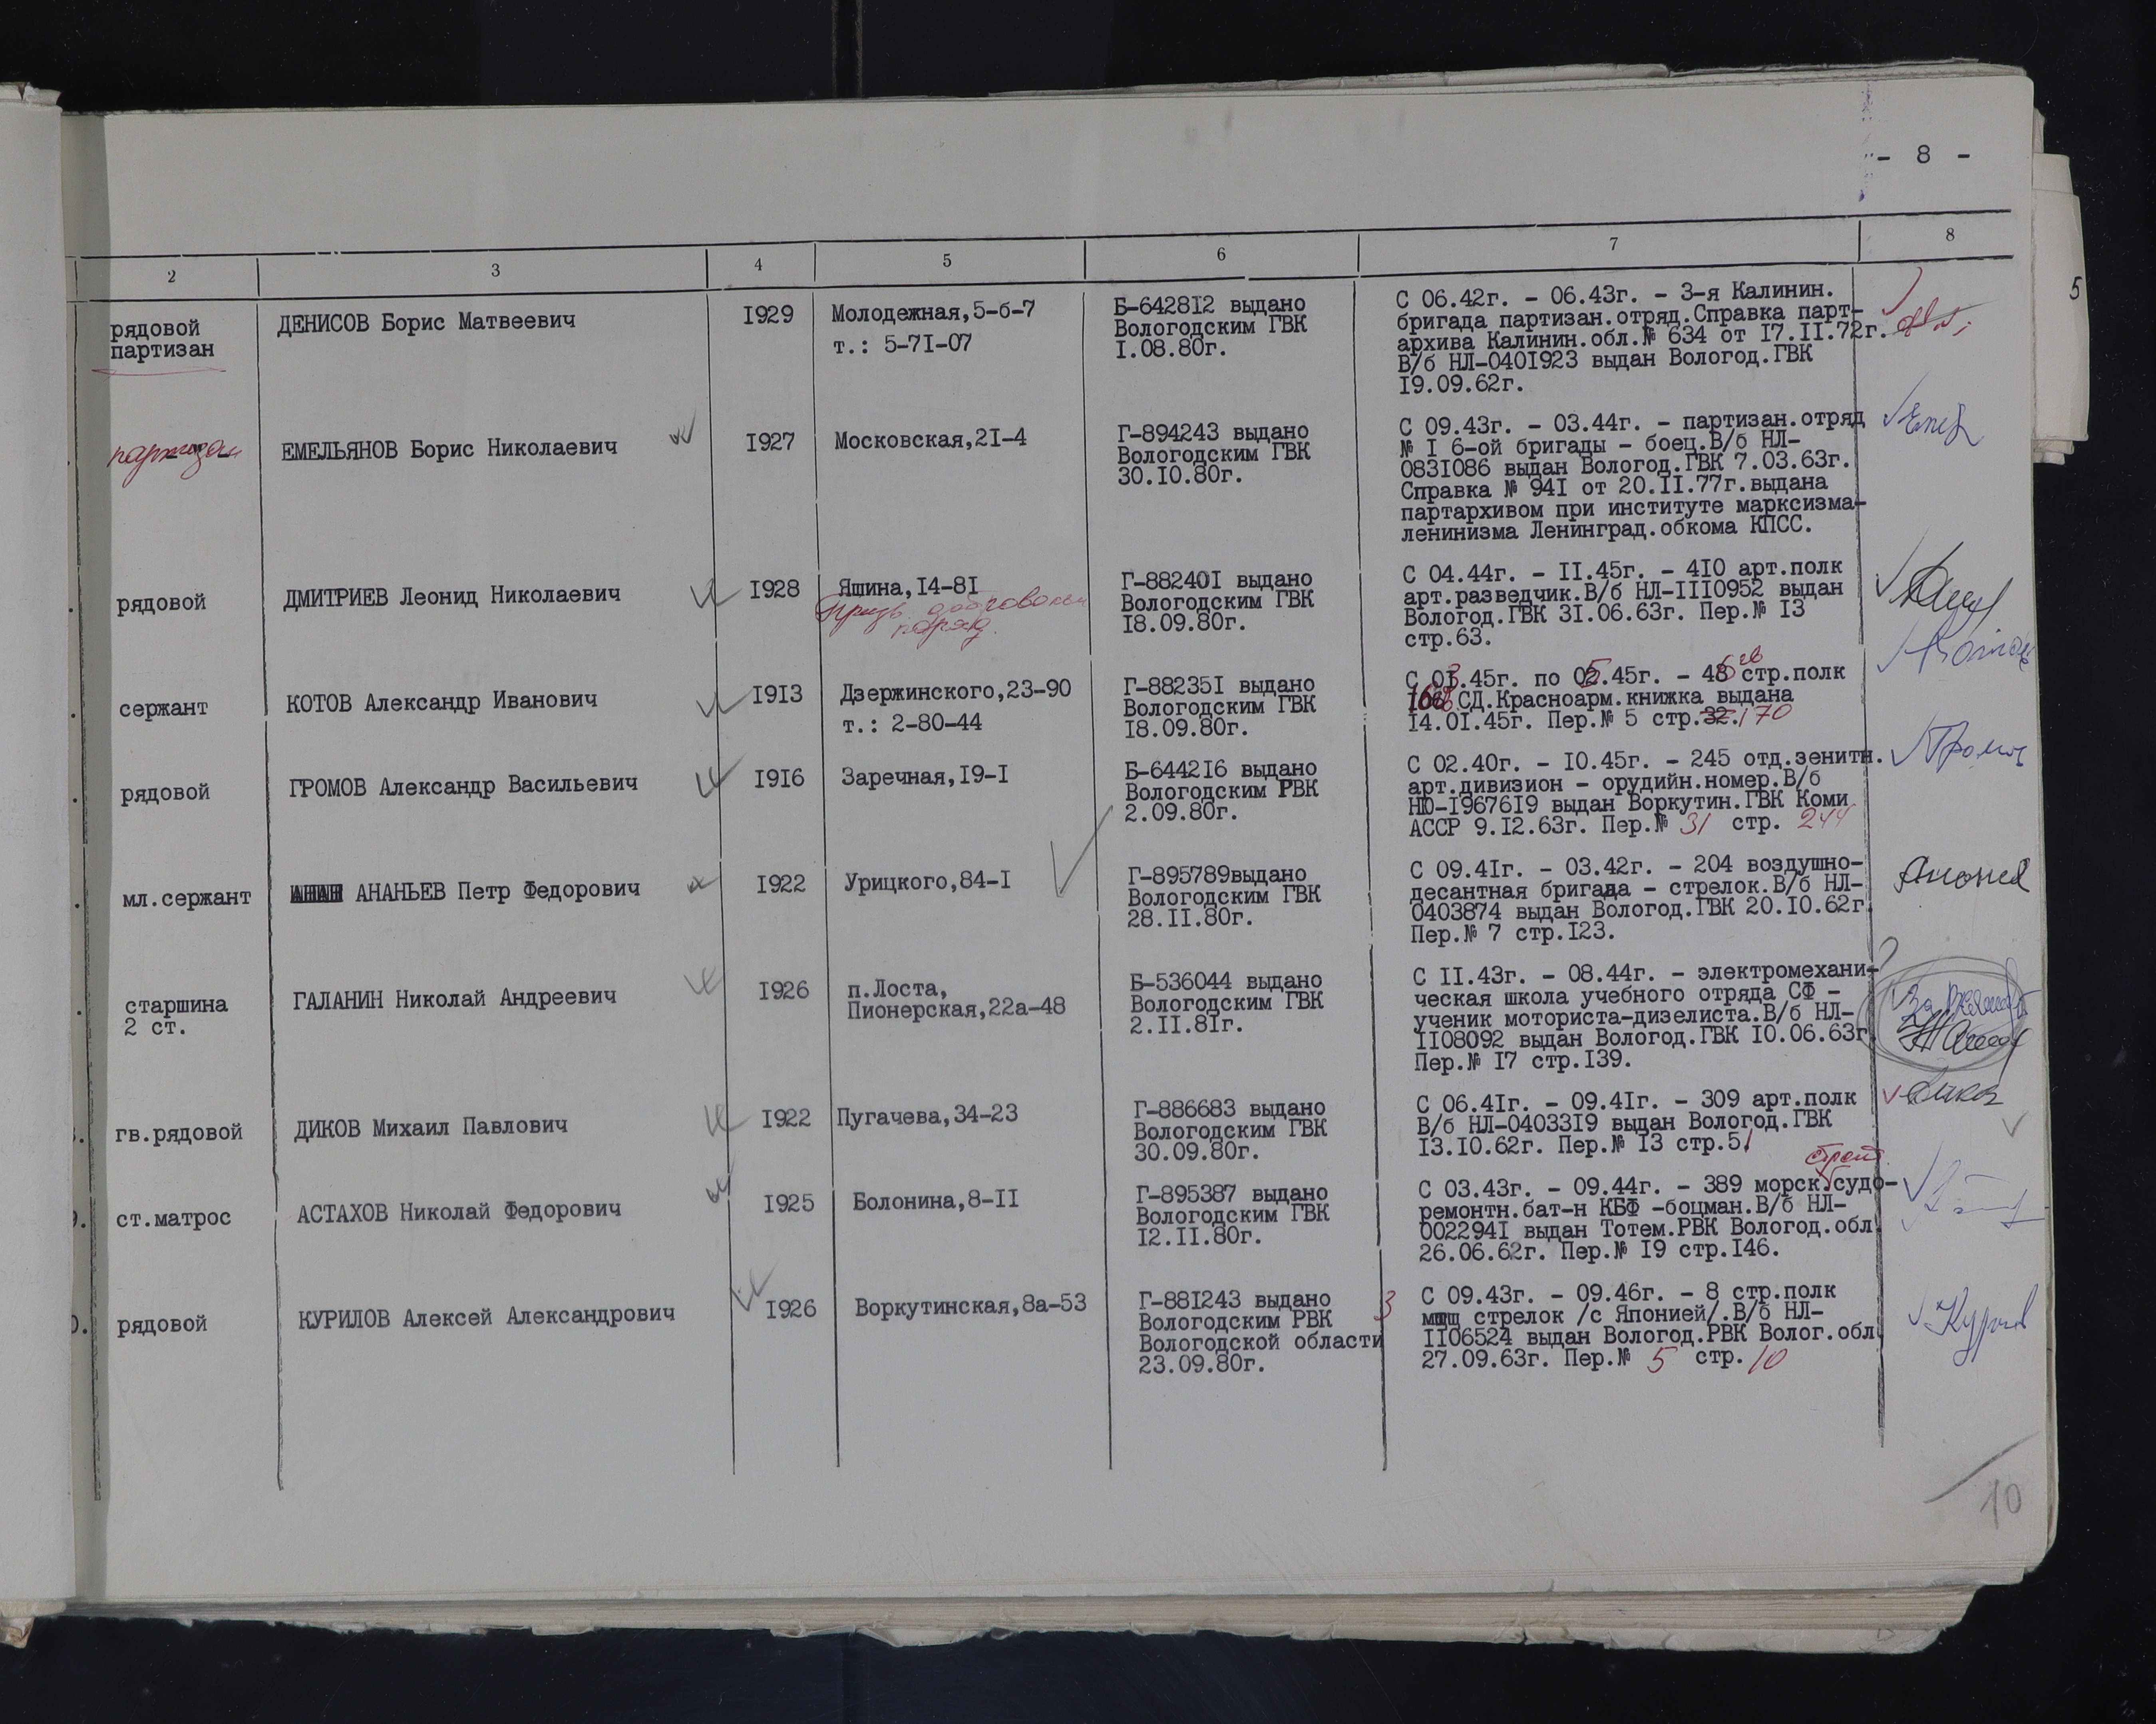 - 8 -
2 3 4 5 6 7 8
5
рядовой
партизан
ДЕНИСОВ Борис Матвеевич
1929
Молодежная,5-б-7
т.: 5-71-07
Б-642812 выдано
Вологодским ГВК
1.08.80г.
С 06.42г. - 06.43г. - 3-я Калинин.
бригада партизан.отряд.Справка парт-
архива Калинин.обл.№ 634 от 17.11.72г.
В/б НЛ-0401923 выдан Вологод.ГВК
19.09.62г.
партизан
ЕМЕЛЬЯНОВ Борис Николаевич
1927
Московская,21-4
Г-894243 выдано
Вологодским ГВК
30.10.80г.
С 09.43г. - 03.44г. - партизан.отряд
№ 1 6-ой бригады - боец.В/б НЛ-
0831086 выдан Вологод.ГВК 7.03.63г.
Справка № 941 от 20.11.77г.выдана
партархивом при институте марксизма-
ленинизма Ленинград.обкома КПСС.
рядовой
ДМИТРИЕВ Леонид Николаевич
1928
Яшина,14-81
Г-882401 выдано
Вологодским ГВК
18.09.80г.
С 04.44г. - 11.45г. - 410 арт.полк
арт.разведчик.В/б НЛ-1110952 выдан
Вологод.ГВК 31.06.63г. Пер.№ 13
стр.63.
сержант
КОТОВ Александр Иванович
1913
Дзержинского,23-90
т.: 2-80-44
Г-882351 выдано
Вологодским ГВК
18.09.80г.
С 03.45г. по 05.45г. - стр.полк
СД.Красноарм.книжка выдана
14.01.45г. Пер.№ 5 стр.32. 170
рядовой
ГРОМОВ Александр Васильевич
1916
Заречная,19-1
Б-644216 выдано
Вологодским РВК
2.09.80г.
С 02.40г. - 10.45г. - 245 отд.зенитн.
арт.дивизион - орудийн.номер.В/б
НЮ-1967619 выдан Воркутин.ГВК Коми
АССР 9.12.63г. Пер.№ 31 стр. 244
мл.сержант
АНАНЬЕВ Петр Федорович
1922
Урицкого,84-1
Г-895789выдано
Вологодским ГВК
28.11.80г.
С 09.41г. - 03.42г. - 204 воздушно-
десантная бригада - стрелок.В/б НЛ-
0403874 выдан Вологод.ГВК 20.10.62г.
Пер.№ 7 стр.123.
старшина
2 ст.
ГАЛАНИН Николай Андреевич
1926
п.Лоста,
Пионерская,22а-48
Б-536044 выдано
Вологодским ГВК
2.11.81г.
С 11.43г. - 08.44г. - электромехани-
ческая школа учебного отряда СФ -
ученик моториста-дизелиста.В/б НЛ-
1108092 выдан Вологод.ГВК 10.06.63г
Пер.№ 17 стр.139.
гв.рядовой
ДИКОВ Михаил Павлович
1922
Пугачева,34-23
Г-886683 выдано
Вологодским ГВК
30.09.80г.
С 06.41г. - 09.41г. - 309 арт.полк
В/б НЛ-0403319 выдан Вологод.ГВК
13.10.62г. Пер.№ 13 стр.51
ст.матрос
АСТАХОВ Николай Федорович
1925
Болонина,8-11
Г-895387 выдано
Вологодским ГВК
12.11.80г.
строит.
С 03.43г. - 09.44г. - 389 морск.судо-
ремонтн.бат-н КБФ -боцман.В/б НЛ-
0022941 выдан Тотем.РВК Вологод.обл.
26.06.62г. Пер.№ 19 стр.146.
рядовой
КУРИЛОВ Алексей Александрович
1926
Воркутинская,8а-53
Г-881243 выдано
Вологодским РВК
Вологодской области
23.09.80г.
3
С 09.43г. - 09.46г. - 8 стр.полк
стрелок /с Японией/.В/б НЛ-
1106524 выдан Вологод.РВК Волог.обл.
27.09.63г. Пер.№ 5 стр. 10
10